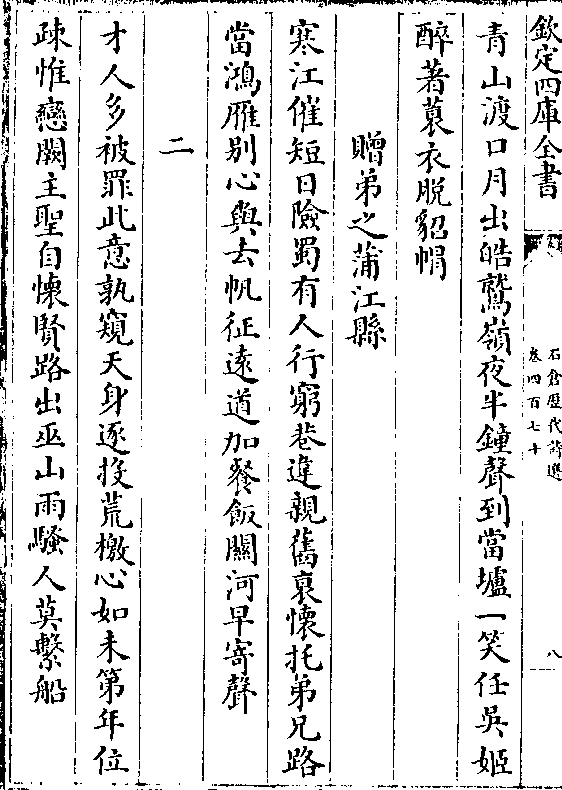 欽定四庫全書
石倉歷代詩選
卷四百七十
八
青山渡口月出皓鷲嶺夜半鐘聲到當壚一笑任吳姬
醉著蓑衣脫貂帽
贈弟之蒲江縣
寒江催短日險蜀有人行窮巷違親舊衰懷托弟兄路
當鴻雁別心與去帆征遠道加餐飯關河早寄聲
二
才人多被罪此意孰窺天身逐投荒檄心如未第年位
疎惟戀闕主聖自懷賢路出巫山雨騷人莫繫船